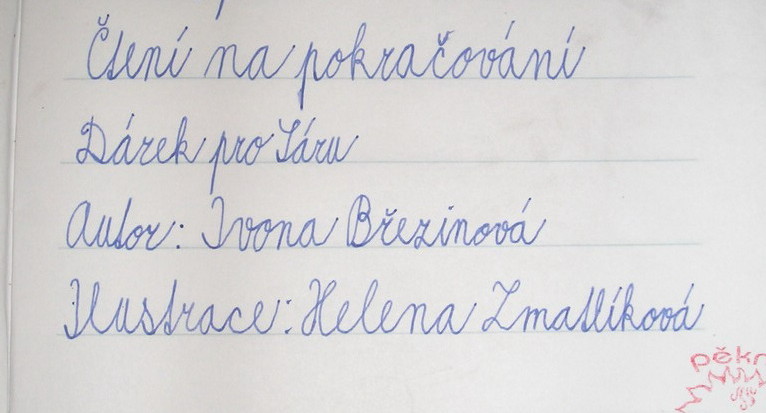 Čtení na pokračování
Dárek pro Sáru
Autor: Ivona Březinová
Ilustrace: Helena Zmatlíková